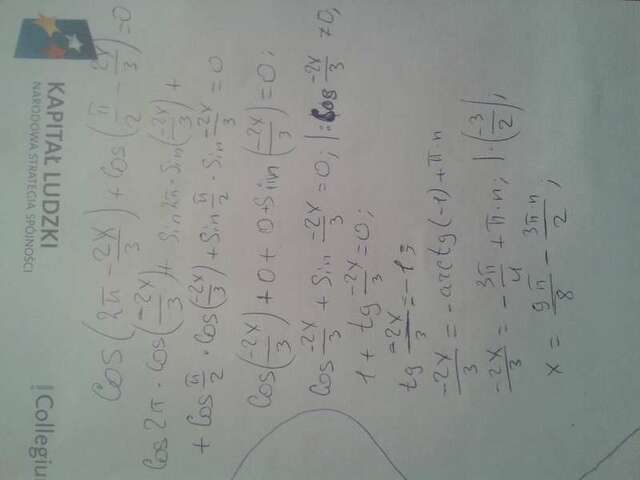 KAPITAŁ LUDZKI
NARODOWA STRATEGIA SPÓJNOŚCI
Collegiu
cos(2π - 2x/3) + cos(π/2 - 2x/3) = 0
cos 2π · cos(-2x/3) + sin 2π · sin(-2x/3) +
+ cos π/2 · cos(-2x/3) + sin π/2 · sin -2x/3 = 0
cos(-2x/3) + 0 + 0 + sin(-2x/3) = 0;
cos -2x/3 + sin -2x/3 = 0; |: cos -2x/3 ≠ 0;
1 + tg -2x/3 = 0;
tg -2x/3 = -1;
-2x/3 = -arctg(-1) + π·n
-2x/3 = -3π/4 + π·n; | · (-3/2);
x = 9π/8 - 3πn/2;